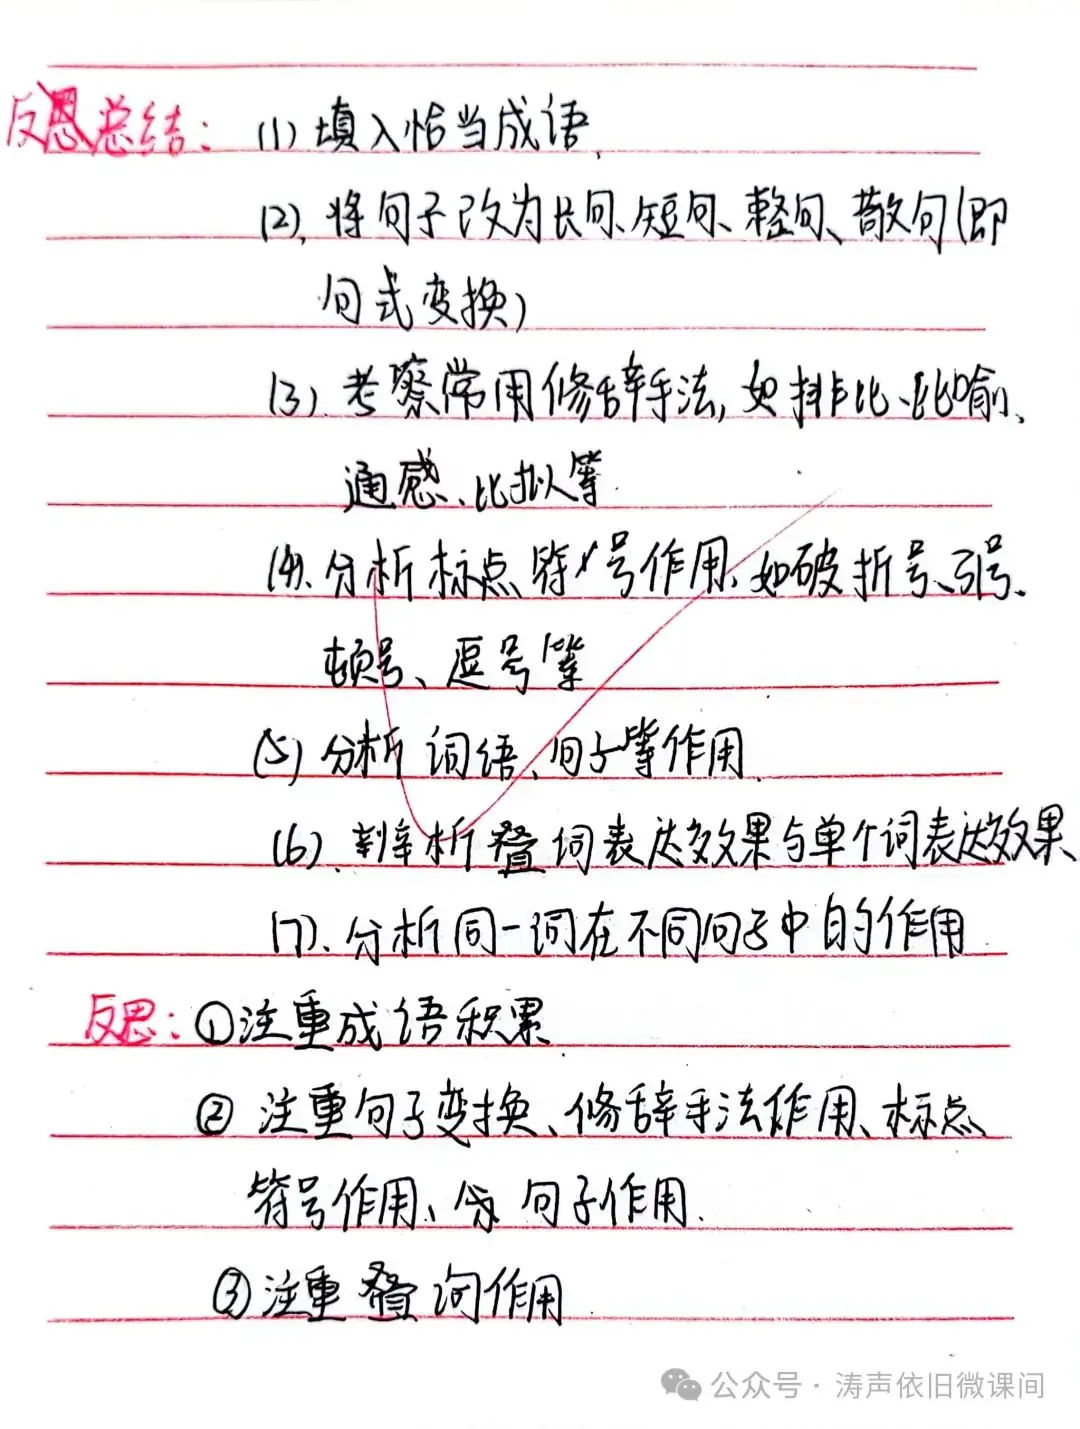 反思总结：(1)填入恰当成语.
(2).将句子改为长句、短句、整句、散句(即
句式变换)
(3).考察常用修辞手法,如排比、比喻、
通感、比拟等.
(4).分析标点符号作用,如破折号、引号、
顿号、逗号等
(5)分析词语、句子等作用.
(6).辨析叠词表达效果与单个词表达效果
(7).分析同一词在不同句子中的作用
反思：①注重成语积累
②注重句子变换、修辞手法作用、标点
符号作用、句子作用.
③注重叠词作用
公众号·涛声依旧微课间